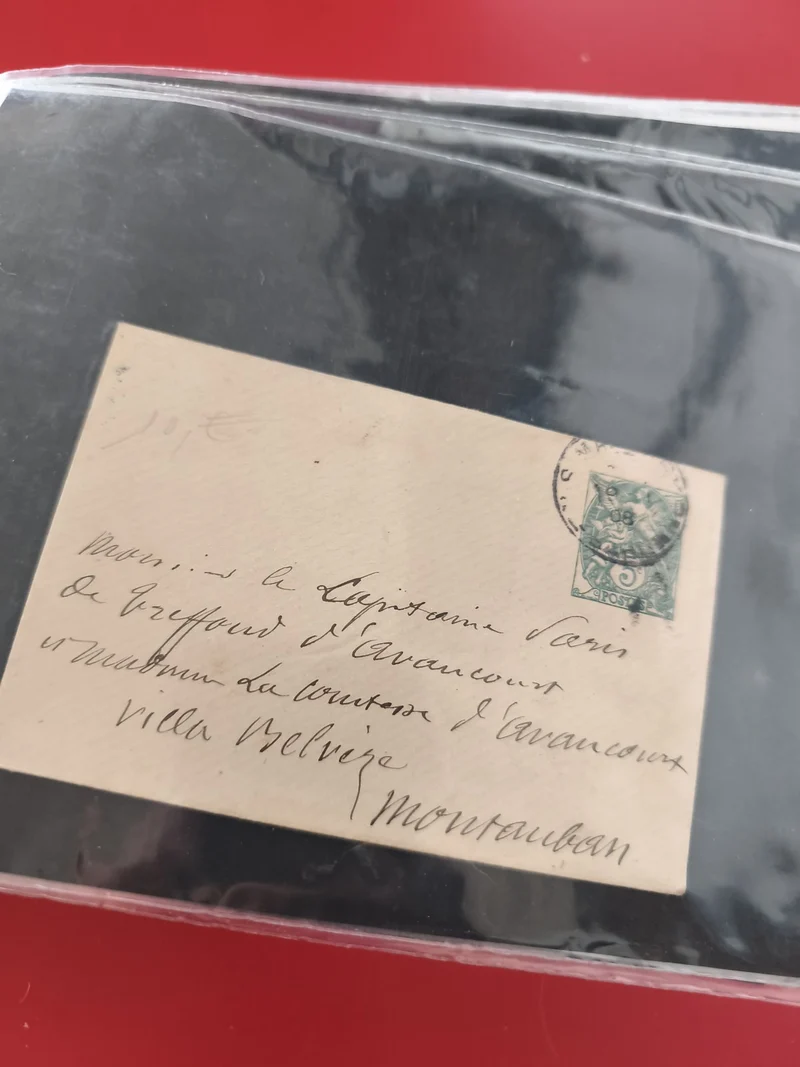 10,€
08
5
POSTE
Monsieur le Capitaine Paris
de Treffond d'Avancourt
et Madame La Comtesse d'Avancourt
Villa Belvèze
Montauban